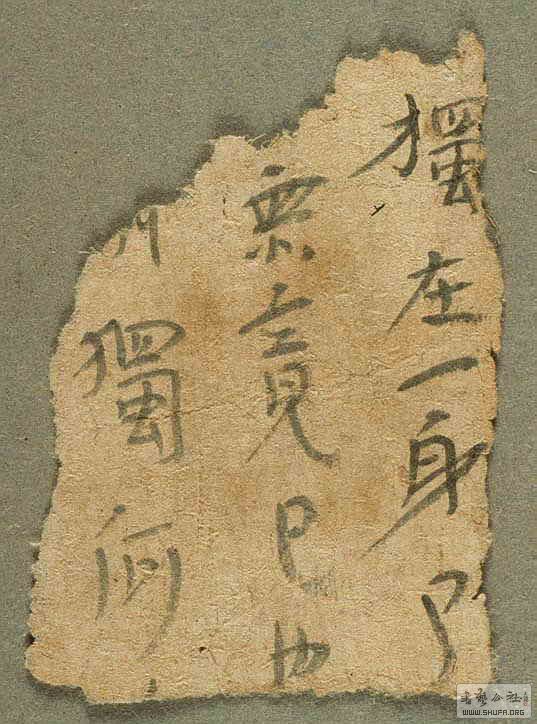 獨在一身
無竟已
獨何
書藝公社
WWW.SHUFA.ORG